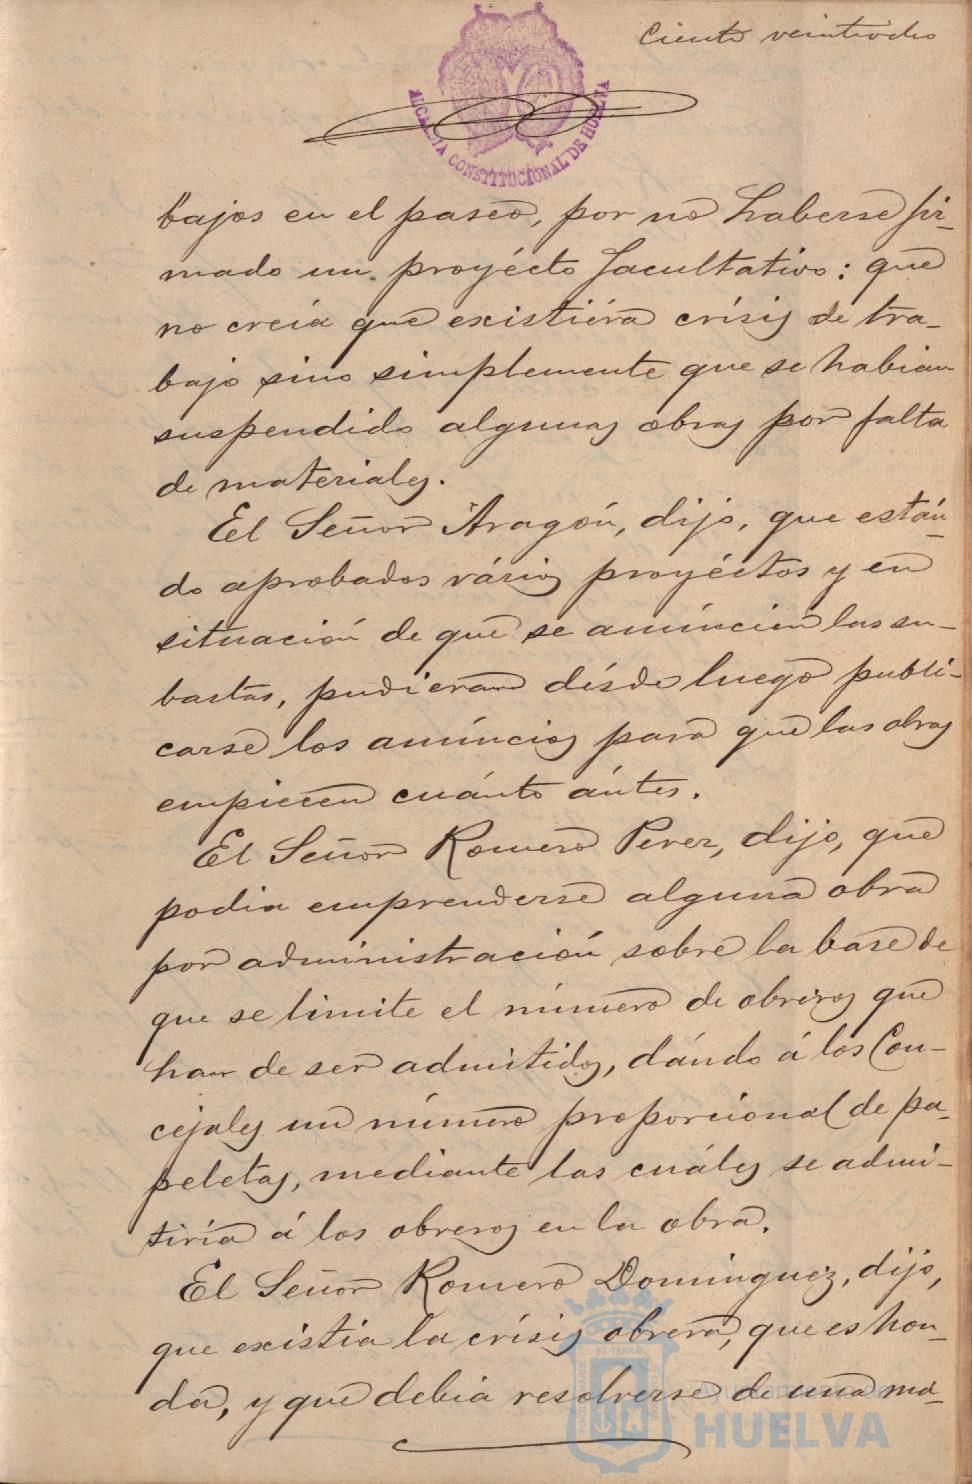 Ciento veintiocho
ALCALDIA CONSTITUCIONAL DE HUELVA
bajos en el paseo, por no haberse fir-
mado un proyécto facultativo: que
no creia que existiéra crísis de tra-
bajo sino simplemente que se habian
suspendido algunas obras por falta
de materiales.
El Señor Aragón, dijo, que están-
do aprobados vários proyéctos y en
situación de que se anúncien las su-
bastas, pudieran désde luego publi-
carse los anúncios para que las obras
empiecen cuánto ántes.
El Señor Romero Perez, dijo, que
podia emprenderse alguna obra
por administración sobre la base de
que se limite el número de obreros que
han de ser admitidos, dándo á los Con-
cejales un número proporcional de pa-
peletas, mediante las cuáles se admi-
tiría á los obreros en la obra.
El Señor Romero Dominguez, dijo,
que existia la crísis obrera, que es hon-
da, y que debia resolverse de una ma-
HUELVA